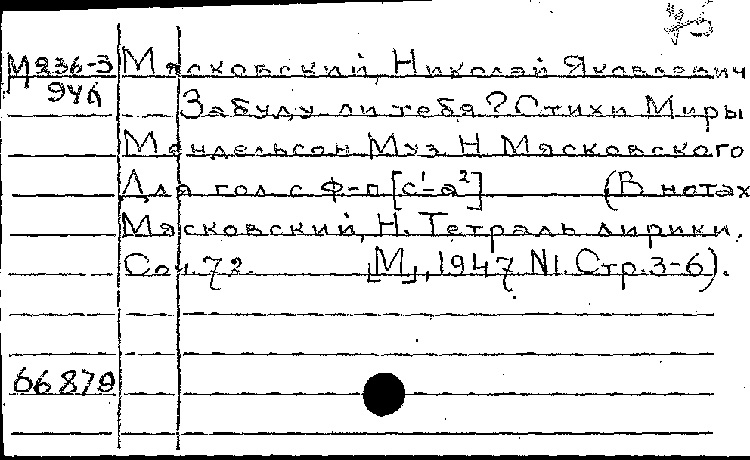 75
М236-3 Мясковский, Николай Яковлевич
94к Забуду ли тебя? Стихи Миры
Мендельсон Муз. Н. Мясковского
Для гол. с ф-п [c¹-a²] (В нотах
Мясковский, Н. Тетрадь лирики.
Соч. 72. [М], 1947 N1. Стр. 3-6).
66879